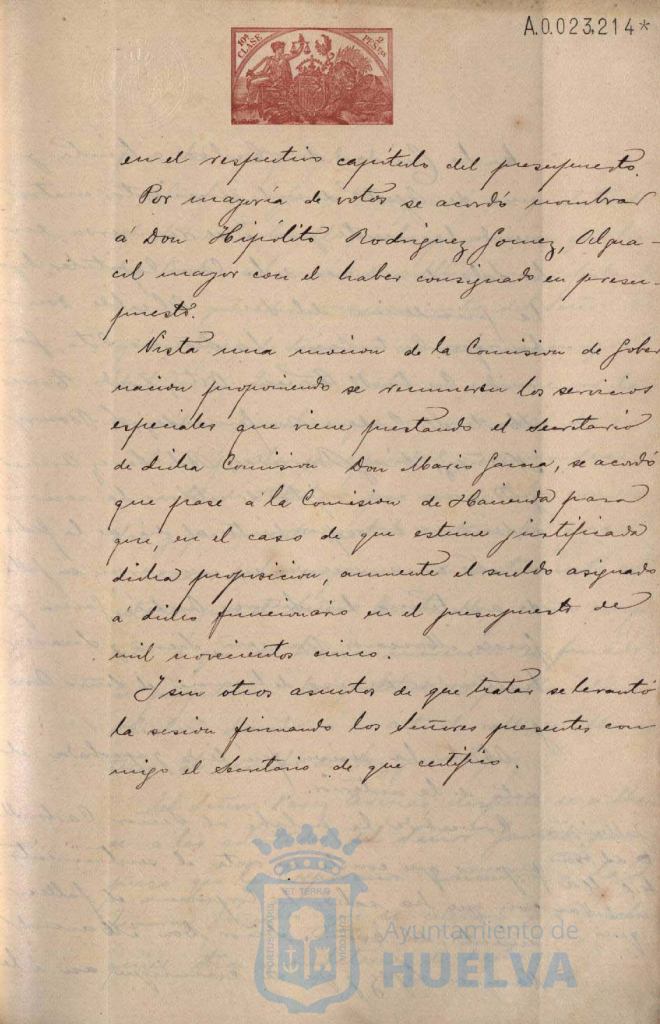 A.0.023,214*
10ª CLASE
2 PESTAS
en el respectivo capítulo del presupuesto.
Por mayoría de votos se acordó nombrar
á Don Hipólito Rodriguez Gomez, Algua-
cil mayor con el haber consignado en presu-
puesto.
Vista una mocion de la Comision de Gober
nacion proponiendo se remuneren los servicios
especiales que viene prestando el Secretario
de dicha Comision Don Mario Garcia, se acordó
que pase á la Comision de Hacienda para
que, en el caso de que estime justificada
dicha proposicion, aumente el sueldo asignado
á dicho funcionario en el presupuesto de
mil novecientos cinco.
Y sin otros asuntos de que tratar se levantó
la sesion firmando los Señores presentes con
migo el Secretario de que certifico.
ET TERRÆ
PORTUS MARIS
CUSTODIA
Ayuntamiento de
HUELVA